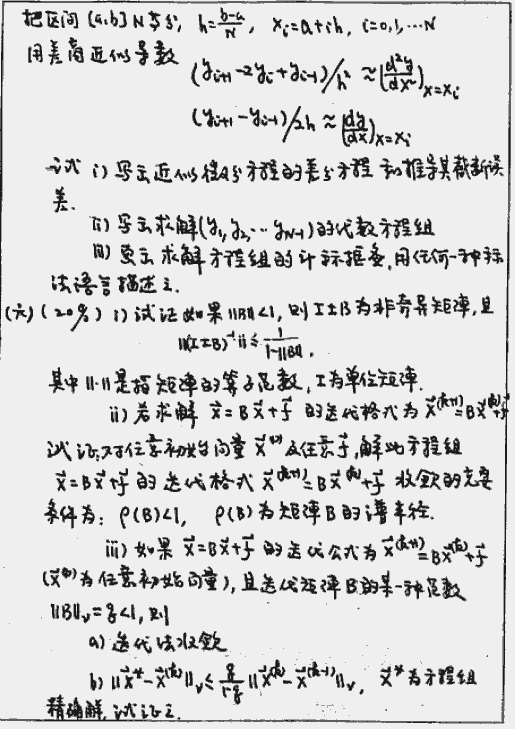 把区间[a,b] N等分, h=\frac{b-a}{N}, x_i=a+ih, i=0,1,…N
用差商近似导数
(y_{i+1}-2y_i+y_{i-1})/h^2≈(\frac{d^2y}{dx^2})_{x=x_i}
(y_{i+1}-y_{i-1})/2h≈(\frac{dy}{dx})_{x=x_i}
试 i) 写出近似微分方程的差分方程和推导其截断误
差.
ii) 写出求解(y_1,y_2,…y_{N-1})的代数方程组
iii) 画出求解方程组的计算框图,用任何一种算
法语言描述之.
(六)(20%) i) 试证如果||B||<1,则I±B为非奇异矩阵,且
||(I±B)^{-1}||≤\frac{1}{1-||B||},
其中||·||是指矩阵的算子范数,I为单位矩阵.
ii) 若求解 \vec{x}=B\vec{x}+\vec{f} 的迭代格式为 \vec{x}^{(k+1)}=B\vec{x}^{(k)}+\vec{f}
试证对任意初始向量\vec{x}^{(0)}及任意\vec{f},解此方程组
\vec{x}=B\vec{x}+\vec{f} 的迭代格式 \vec{x}^{(k+1)}=B\vec{x}^{(k)}+\vec{f} 收敛的充要
条件为: ρ(B)<1, ρ(B)为矩阵B的谱半径.
iii) 如果 \vec{x}=B\vec{x}+\vec{f} 的迭代公式为 \vec{x}^{(k+1)}=B\vec{x}^{(k)}+\vec{f}
(\vec{x}^{(0)}为任意初始向量),且迭代矩阵B的某一种范数
||B||_v=q<1,则
a) 迭代法收敛
b) ||\vec{x}^*-\vec{x}^{(k)}||_v≤\frac{q}{1-q}||\vec{x}^{(k)}-\vec{x}^{(k-1)}||_v, \vec{x}^*为方程组
精确解,试证之.